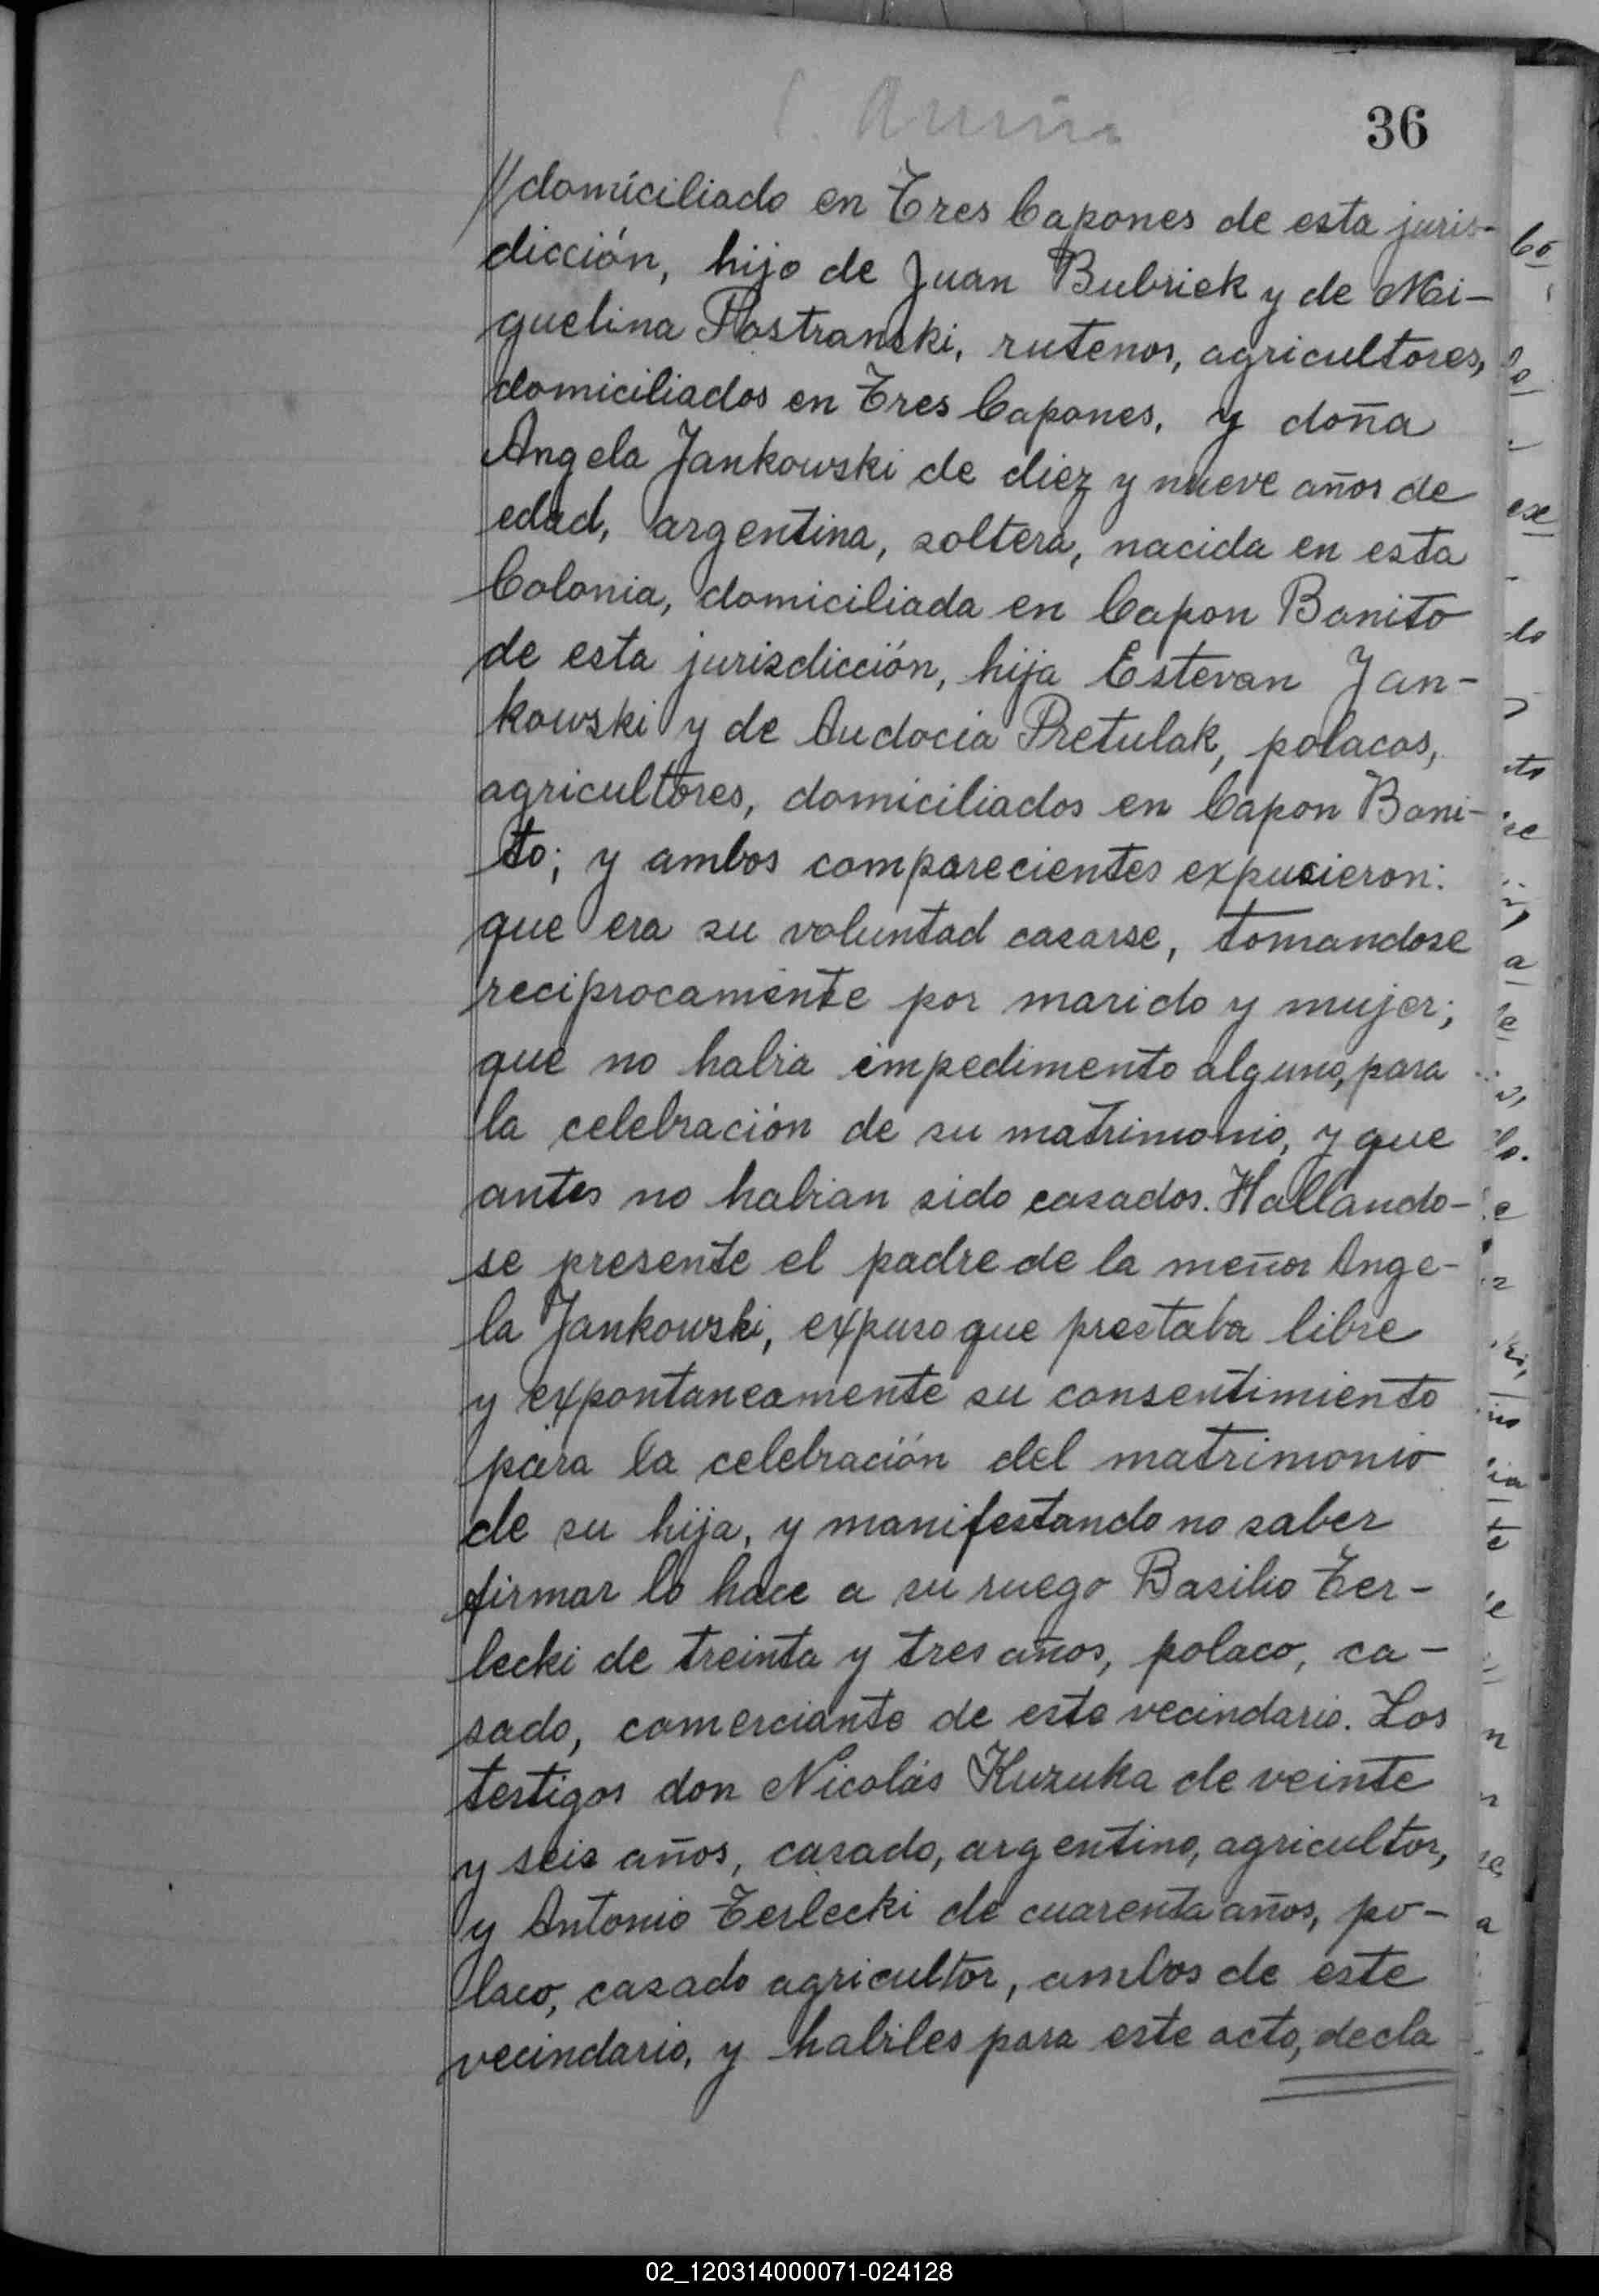 36
//domiciliado en Tres Capones de esta juris-
dicción, hijo de Juan Bubriek y de Mi-
guelina Postranski, rutenos, agricultores,
domiciliados en Tres Capones, y doña
Angela Jankowski de diez y nueve años de
edad, argentina, soltera, nacida en esta
Colonia, domiciliada en Capon Bonito
de esta jurisdicción, hija Estevan Jan-
kowski y de Audocia Pretulak, polacos,
agricultores, domiciliados en Capon Boni-
to; y ambos comparecientes expusieron:
que era su voluntad casarse, tomandose
reciprocamente por marido y mujer;
que no habia impedimento alguno, para
la celebración de su matrimonio, y que
antes no habian sido casados. Hallando-
se presente el padre de la menor Ange-
la Jankowski, expuso que prestaba libre
y expontaneamente su consentimiento
para la celebración del matrimonio
de su hija, y manifestando no saber
firmar lo hace a su ruego Basilio Ter-
lecki de treinta y tres años, polaco, ca-
sado, comerciante de este vecindario. Los
testigos don Nicolás Kuzuka de veinte
y seis años, casado, argentino, agricultor,
y Antonio Terlecki de cuarenta años, po-
laco, casado agricultor, ambos de este
vecindario, y habiles para este acto, decla
02_120314000071-024128